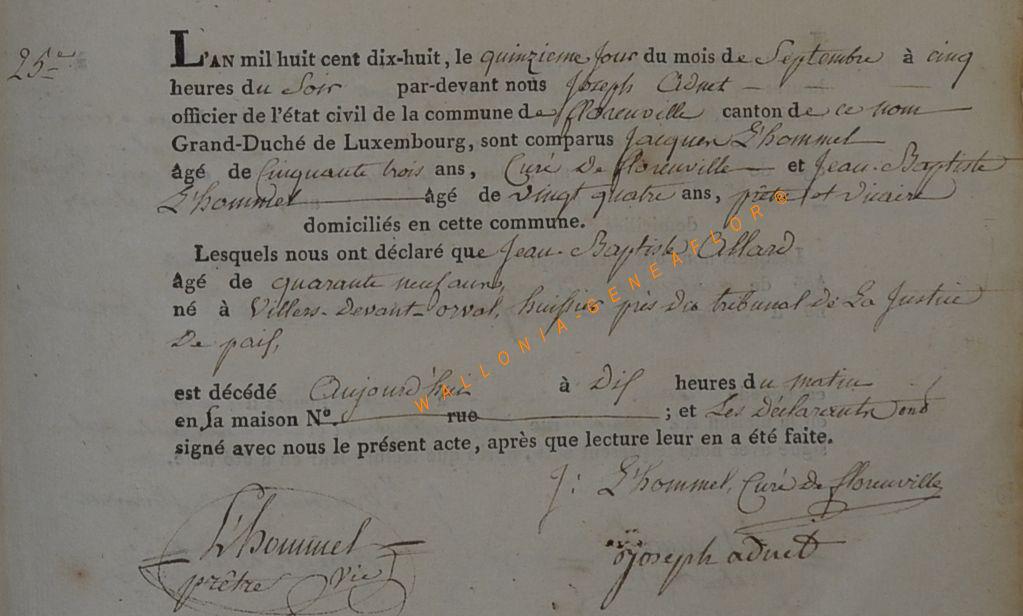 25e
L'AN mil huit cent dix-huit, le quinzieme jour du mois de Septembre à cinq
heures du Soir par-devant nous Joseph Adnet
officier de l'état civil de la commune de florenville canton de ce nom
Grand-Duché de Luxembourg, sont comparus Jacques L'hommel
âgé de Cinquante trois ans, Curé De florenville et Jean-Baptiste
L'hommel âgé de vingt quatre ans, prêtre et vicaire
domiciliés en cette commune.
Lesquels nous ont déclaré que Jean-Baptiste Allard
âgé de quarante neuf ans,
né à Villers-Devant-orval, huissier près du tribunal de La Justice
De paix,
est décédé Aujourd'hui à Dix heures du matin
en sa maison N°. rue ; et Les Déclarants ont
signé avec nous le présent acte, après que lecture leur en a été faite.
J: L'hommel, Curé De florenville
L'hommel
prêtre Vic
Joseph adnet
WALLONIA-GENEAFLOR®